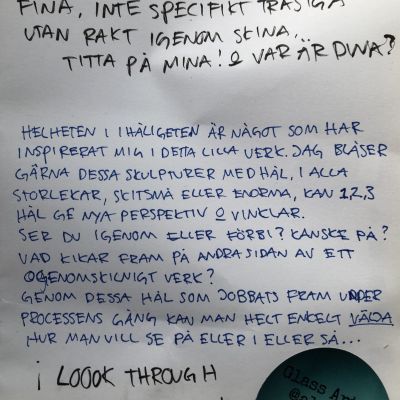 FINA, INTE SPECIFIKT TRASIGA
UTAN RAKT IGENOM SKINA...
TITTA PÅ MINA! & VAR ÄR DINA?
HELHETEN I IHÅLIGETEN ÄR NÅGOT SOM HAR
INSPIRERAT MIG I DETTA LILLA VERK. JAG BLÅSER
GÄRNA DESSA SKULPTURER MED HÅL, I ALLA
STORLEKAR, SKITSMÅ ELLER ENORMA, KAN 1,2,3
HÅL GE NYA PERSPEKTIV & VINKLAR.
SER DU IGENOM ELLER FÖRBI? KANSKE PÅ?
VAD KIKAR FRAM PÅ ANDRA SIDAN AV ETT
OGENOMSKILNIGT VERK?
GENOM DESSA HÅL SOM JOBBATS FRAM UNDER
PROCESSENS GÅNG KAN MAN HELT ENKELT VÄLJA
HUR MAN VILL SE PÅ ELLER I ELLER SÅ...
¡ LOOOK THROUGH
Glass Art